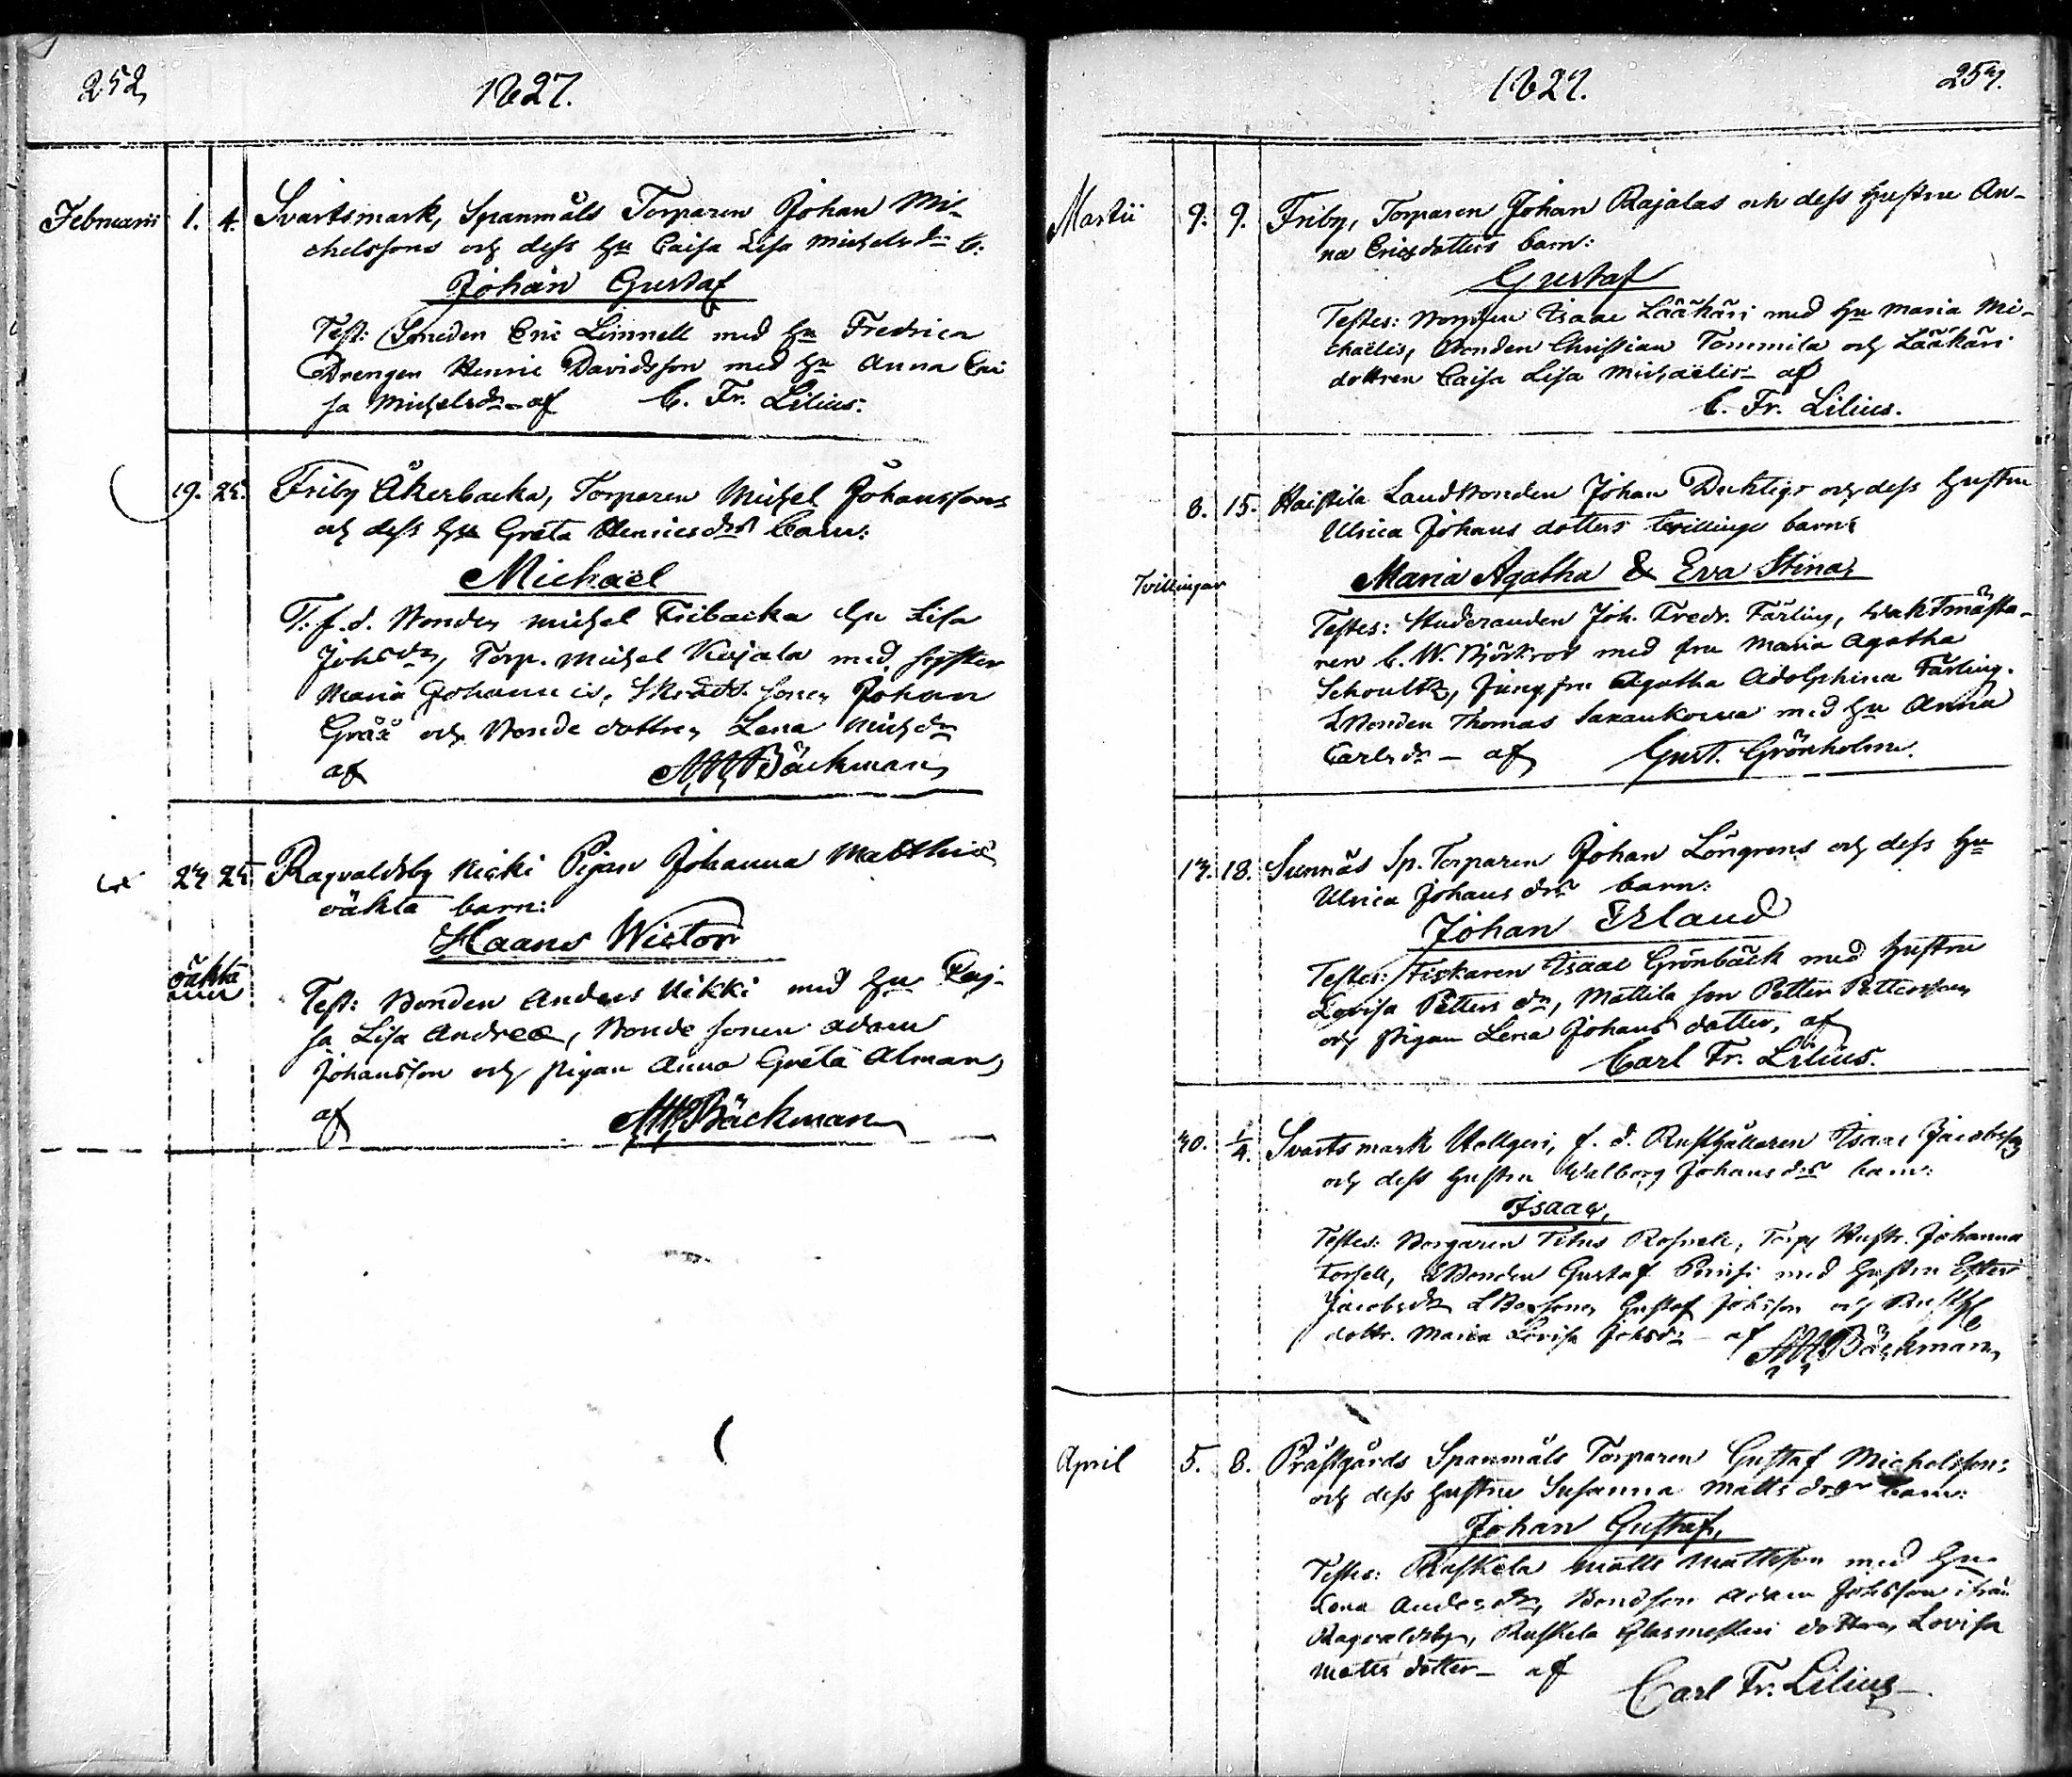 252
1827.
Februarii 1. 4. Svartsmark, Spanmåls Torparen Johan Mi-
chelssons och dess hu Caisa Lisa Michelsdr b:
Johan Gustaf
Test: Smeden Eric Limnell med hu Fredrica
Drengen Henric Davidsson med hu Anna Cai
sa Michelsdr af C. Fr. Lilius.
19. 25. Friby Åkerbacka, Torparen Michel Johanssons
och dess hu Greta Henricsdrs barn:
Michaël
T: f.d. Bonden Michel Fribacka hu Lisa
Johsdr, Torp. Michel Kujala med syster
Maria Johannis, sonen Johan
Gråå och Bonde dottren Lena Michdr
af Bäckman
23 25 Ragvaldsby Nicki Pigan Johanna Matthiæ
oäkta barn:
Haans Wictor
oäkta
Test: Bonden Anders Nikki med hu Caj-
sa Lisa Andreæ, Bonde sonen Adam
Johansson och pigan Anna Greta Alman
af Bäckman
1827.
253.
Martii 9. 9. Friby, Torparen Johan Rajalas och dess hustru An-
na Ericsdotters barn:
Gustaf
Testes: Isaac Lääkäri med hu Maria Mi-
chaëlis, Bonden Christian Tommila och Lääkäri
dottren Caisa Lisa Michaëlis af
C. Fr. Lilius.
8. 15. Haistila Landbonden Johan Duktigs och dess hustru
Ulrica Johans dotters tvillinge barn:
Tvillingar
Maria Agatha & Eva Stina,
Testes: Studeranden Joh. Fredr. Färling, Waktmästa-
ren C. W. Björkroos med fru Maria Agatha
Schoultz, Jungfru Agatha Adolphina Färling.
LBonden Thomas Saxankorva med hu Anna
Carlsdr - af Gust. Grönholm.
13. 18. Sunnäs Sp. Torparen Johan Löngrens och dess hu
Ulrica Johans drs barn:
Johan Erland
Testes: Fiskaren Isaac Grönbäck med hustru
Lovisa Petters dr, Mattila son Petter Pettersson
och Pigan Lena Johans dotter, af
Carl Fr. Lilius.
30. 1/4. Svartsmark Hollgeri, f. d. Rusthållaren Isaac Jacobsson
och dess hustru Walborg Johans drs barn:
Isaac,
Testes: Borgaren Titus Rosnell, Torp Hustr. Johanna
Forsell, LBonden Gustaf Penisi med hustru Ester
Jacobsdr LBosonen Gustaf Johsson och Rusth
dottr. Maria Lovisa Johsdr - af Bäckman
April 5. 8. Präštgårds Spanmåls Torparen Gustaf Michelssons
och dess hustru Susanna Matts drs barn:
Johan Gustaf,
Testes: Ruskela Matts Mattsson med hu
Lena Andersdr, Bondson Adam Johsson ifrån
Ragvaldsby, Ruskela Glasmestari dottren Lovisa
Matts dotter - af Carl Fr. Lilius